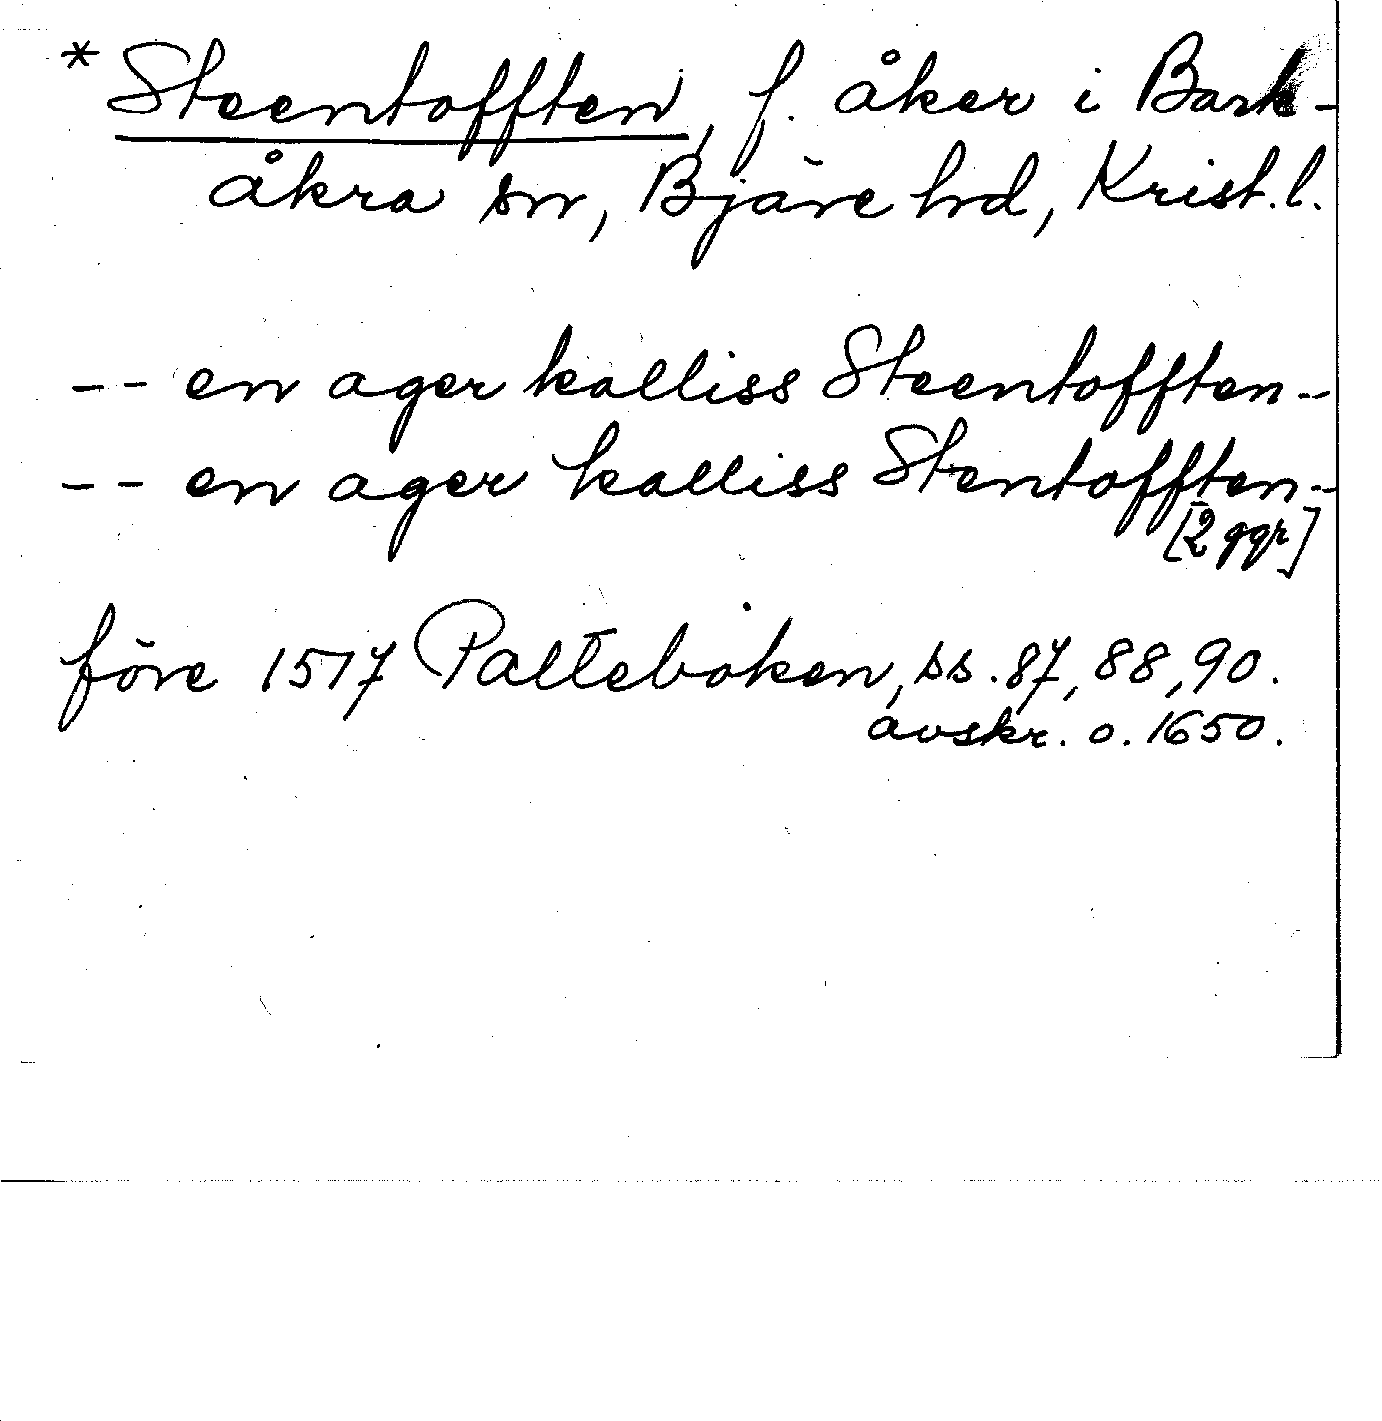 * Steentofften, f. åker i Bark-
åkra sn, Bjäre hd, Krist. l.
-- en ager kalliss Steentofften --
-- en ager kalliss Stentofften --
[2 ggr]
före 1517 Palteboken, ss. 87, 88, 90.
avskr. o. 1650.